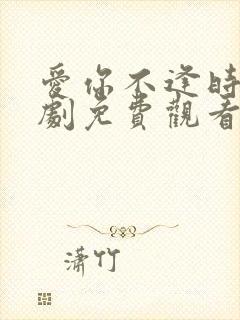 愛你不逢時
劇免費觀看
瀟竹